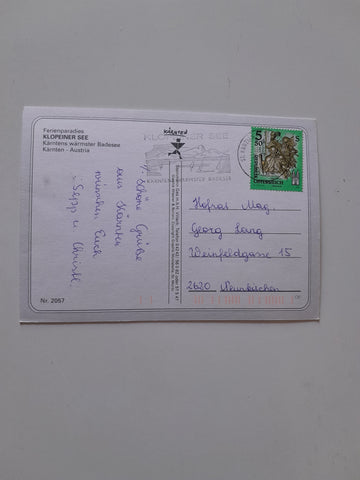 Ferienparadies
KLOPEINER SEE
Kärntens wärmster Badesee
Kärnten - Austria
Schöne Grüße
aus Kärnten
wünschen Euch
Sepp u. Christl
Nr. 2057
Kärnten
KLOPEINER SEE
KÄRNTENS WÄRMSTER BADESEE
5
50
S
Hofrat Mag.
Georg Lang
Weinfeldgasse 15
2620 Neunkirchen